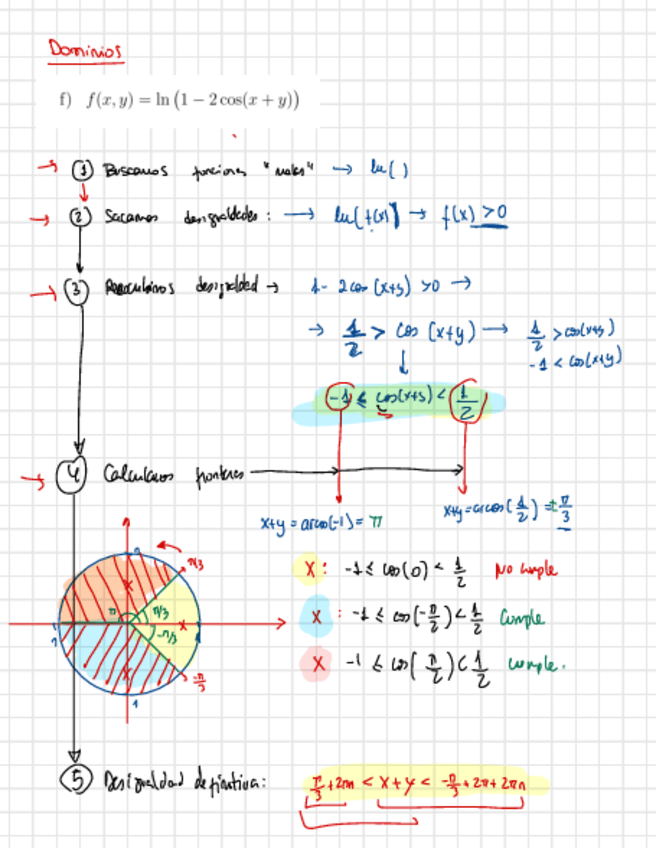 Dominios
f) f(x, y) = ln (1 − 2 cos(x + y))
① Buscamos funciones "malas" → ln( )
② Sacamos desigualdades: → ln(f(x)) → f(x) > 0
③ desigualdad → 1 - 2cos(x+y) > 0 →
→ 1/2 > cos(x+y) → 1/2 > cos(x+y)
-1 < cos(x+y)
-1 ≤ cos(x+y) < 1/2
④ Calculamos fronteras
x+y = arcos(-1) = π
x+y = arcos(1/2) = ±π/3
π/3
X: -1 ≤ cos(0) < 1/2 No cumple
π π/3
-π/3
X: -1 ≤ cos(-π/2) < 1/2 Cumple
X -1 ≤ cos(π/2) < 1/2 cumple.
-π/3
⑤ Desigualdad definitiva: π/3 + 2πn < x+y < -π/3 + 2π + 2πn